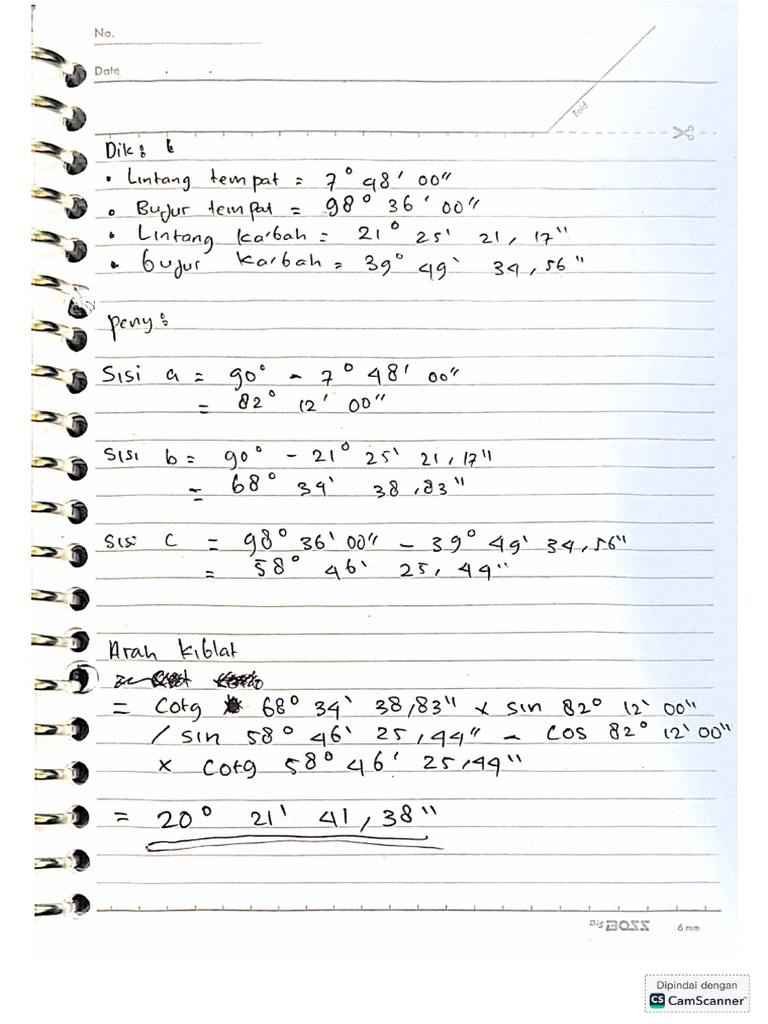 No.
Date
Fold
Dik : L
• Lintang tempat = 7° 48' 00"
• Bujur tempat = 98° 36' 00"
• Lintang ka'bah = 21° 25' 21,17"
• bujur ka'bah = 39° 49' 34,56"
peny :
Sisi a = 90° - 7° 48' 00"
= 82° 12' 00"
Sisi b = 90° - 21° 25' 21,17"
= 68° 34' 38,83"
Sisi c = 98° 36' 00" - 39° 49' 34,56"
= 58° 46' 25,44"
Arah kiblat
= Cotg 68° 34' 38,83" x sin 82° 12' 00"
/ sin 58° 46' 25,44" - cos 82° 12' 00"
x Cotg 58° 46' 25,44"
= 20° 21' 41,38"
Big BOSS 6 mm
Dipindai dengan
CS CamScanner